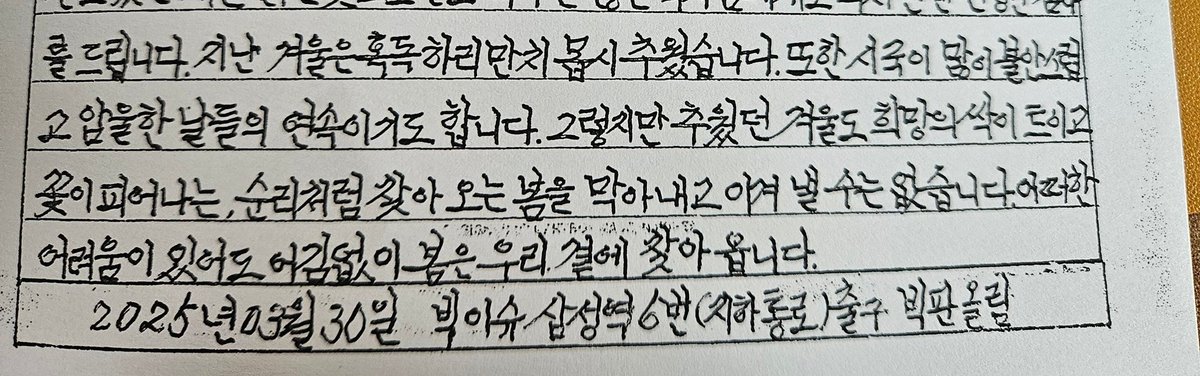 를 드립니다. 지난 겨울은 혹독하리만치 몹시 추웠습니다. 또한 시국이 많이 불안스럽
고 암울한 날들의 연속이기도 합니다. 그렇지만 추웠던 겨울도 희망의 싹이 트이고
꽃이 피어나는, 순리처럼 찾아 오는 봄을 막아 내고 이겨 낼 수는 없습니다. 어떠한
어려움이 있어도 어김없이 봄은 우리 곁에 찾아 옵니다.
2025년 03월 30일 빅이슈 삼성역 6번(지하통로)출구 빅판 올림